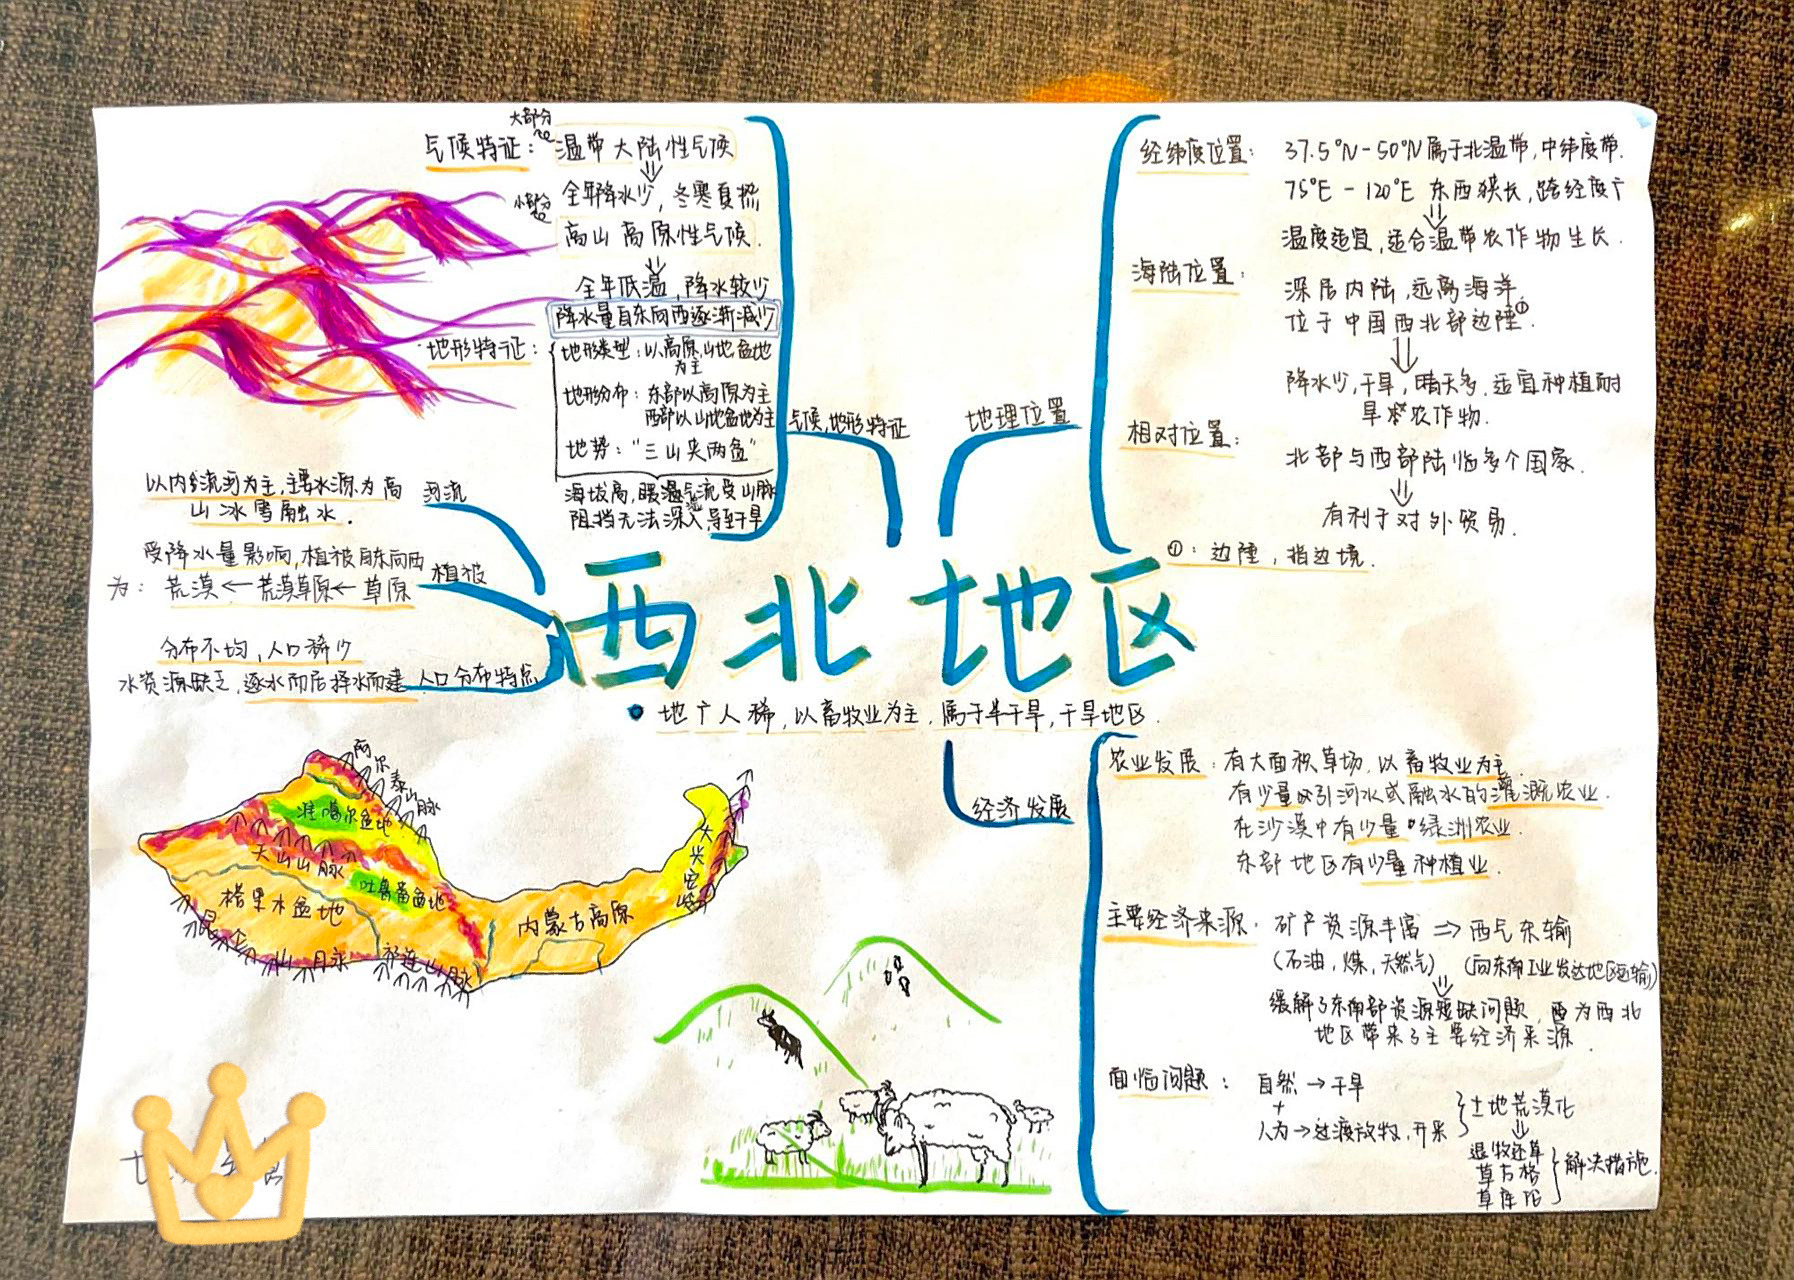 西北地区
地广人稀，以畜牧业为主，属于半干旱，干旱地区．
地理位置
经纬度位置：
37.5°N-50°N属于北温带，中纬度带．
75°E - 120°E 东西狭长，跨经度广
⇓
温度适宜，适合温带农作物生长．
海陆位置：
深居内陆，远离海洋
位于中国西北部边陲①．
⇓
降水少，干旱，晴天多．适宜种植耐
旱农作物．
相对位置：
北部与西部陆临多个国家．
⇓
有利于对外贸易．
①：边陲，指边境．
气候，地形特征
气候特征：
大部分
温带大陆性气候
⇓
全年降水少，冬寒夏热
小部分
高山高原性气候．
⇓
全年低温，降水较少
降水量自东向西逐渐减少
地形特征：
地形类型：以高原，山地，盆地
为主
地形分布：东部以高原为主
西部以山地盆地为主
地势：“三山夹两盆”
海拔高，暖湿气流受山脉
阻挡无法深入导至干旱
河流
以内流河为主，主要水源为高
山冰雪融水．
植被
受降水量影响，植被自东向西
为：荒漠←荒漠草原←草原
人口分布特点
分布不均，人口稀少
水资源缺乏，逐水而居择水而建
阿尔泰山脉
准噶尔盆地
天山山脉
吐鲁番盆地
塔里木盆地
昆仑山脉
祁连山脉
内蒙古高原
大兴安岭
经济发展
农业发展：有大面积草场，以畜牧业为主．
有少量以引河水或融水的灌溉农业．
在沙漠中有少量绿洲农业．
东部地区有少量种植业．
主要经济来源．矿产资源丰富 ⇒ 西气东输
（石油，煤，天然气）（向东南工业发达地区运输）
⇓
缓解了东南部资源短缺问题，为西北
地区带来了主要经济来源．
面临问题：
自然→干旱
+
人为→过渡放牧，开采
土地荒漠化
⇓
退牧还草
草方格
解决措施．